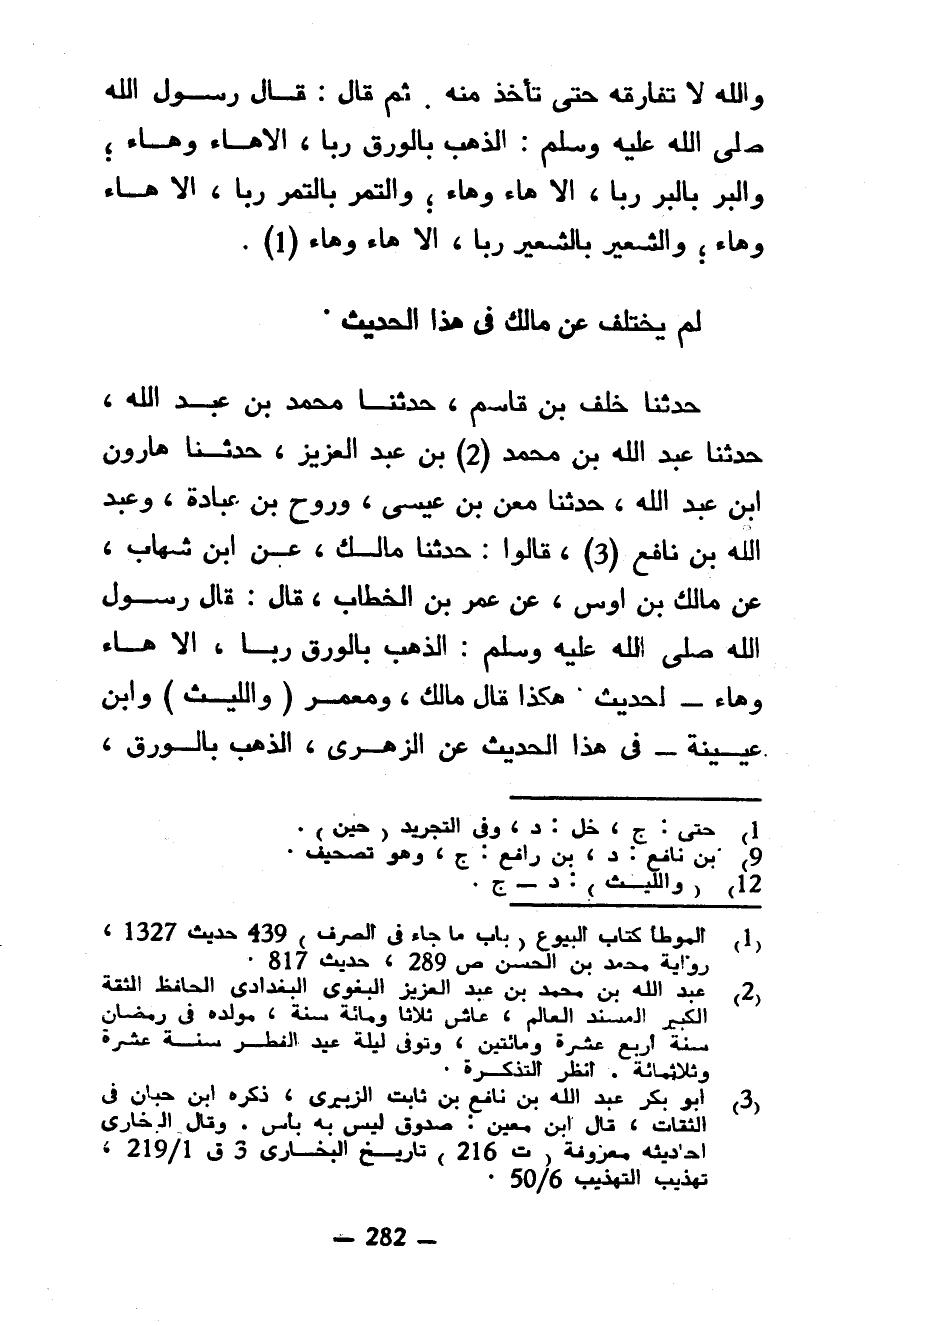 والله لا تفارقه حتى تأخذ منه . ثم قال : قــال رســول الله
صلى الله عليه وسلم : الذهب بالورق ربا ، الاهــاء وهــاء ؛
والبر بالبر ربا ، الا هاء وهاء ؛ والتمر بالتمر ربا ، الا هــاء
وهاء ؛ والشعير بالشعير ربا ، الا هاء وهاء (1) .
لم يختلف عن مالك فى هذا الحديث .
حدثنا خلف بن قاسم ، حدثنــا محمد بن عبــد الله ،
حدثنا عبد الله بن محمد (2) بن عبد العزيز ، حدثــنا هارون
ابن عبد الله ، حدثنا معن بن عيسى ، وروح بن عبادة ، وعبد
الله بن نافع (3) ، قالوا : حدثنا مالــك ، عــن ابن شهاب ،
عن مالك بن اوس ، عن عمر بن الخطاب ، قال : قال رســول
الله صلى الله عليه وسلم : الذهب بالورق ربــا ، الا هــاء
وهاء ــ لحديث . هكذا قال مالك ، ومعمــر ( والليــث ) وابن
عيــينة ــ فى هذا الحديث عن الزهــرى ، الذهب بالــورق ،
1) حتى : ج ، خل : د ، وفى التجريد ( حين ) .
9) بن نافع : د ، بن رافع : ج ، وهو تصحيف .
12) ( والليــث ) : د ــ ج .
(1) الموطأ كتاب البيوع ( باب ما جاء فى الصرف ) 439 حديث 1327 ،
رواية محمد بن الحسن ص 289 ، حديث 817 .
(2) عبد الله بن محمد بن عبد العزيز البغوى البغدادى الحافظ الثقة
الكبير المسند العالم ، عاش ثلاثا ومائة سنة ، مولده فى رمضان
سنة أربع عشرة ومائتين ، وتوفى ليلة عيد الفطــر سنــة عشرة
وثلاثمائة . انظر التذكــرة .
(3) ابو بكر عبد الله بن نافع بن ثابت الزبيرى ، ذكره ابن حبان فى
الثقات ، قال ابن معين : صدوق ليس به بأس . وقال البخارى
احاديثه معروفة ( ت 216 ) تاريــخ البخــارى 3 ق 219/1 ،
تهذيب التهذيب 50/6 .
ــ 282 ــ